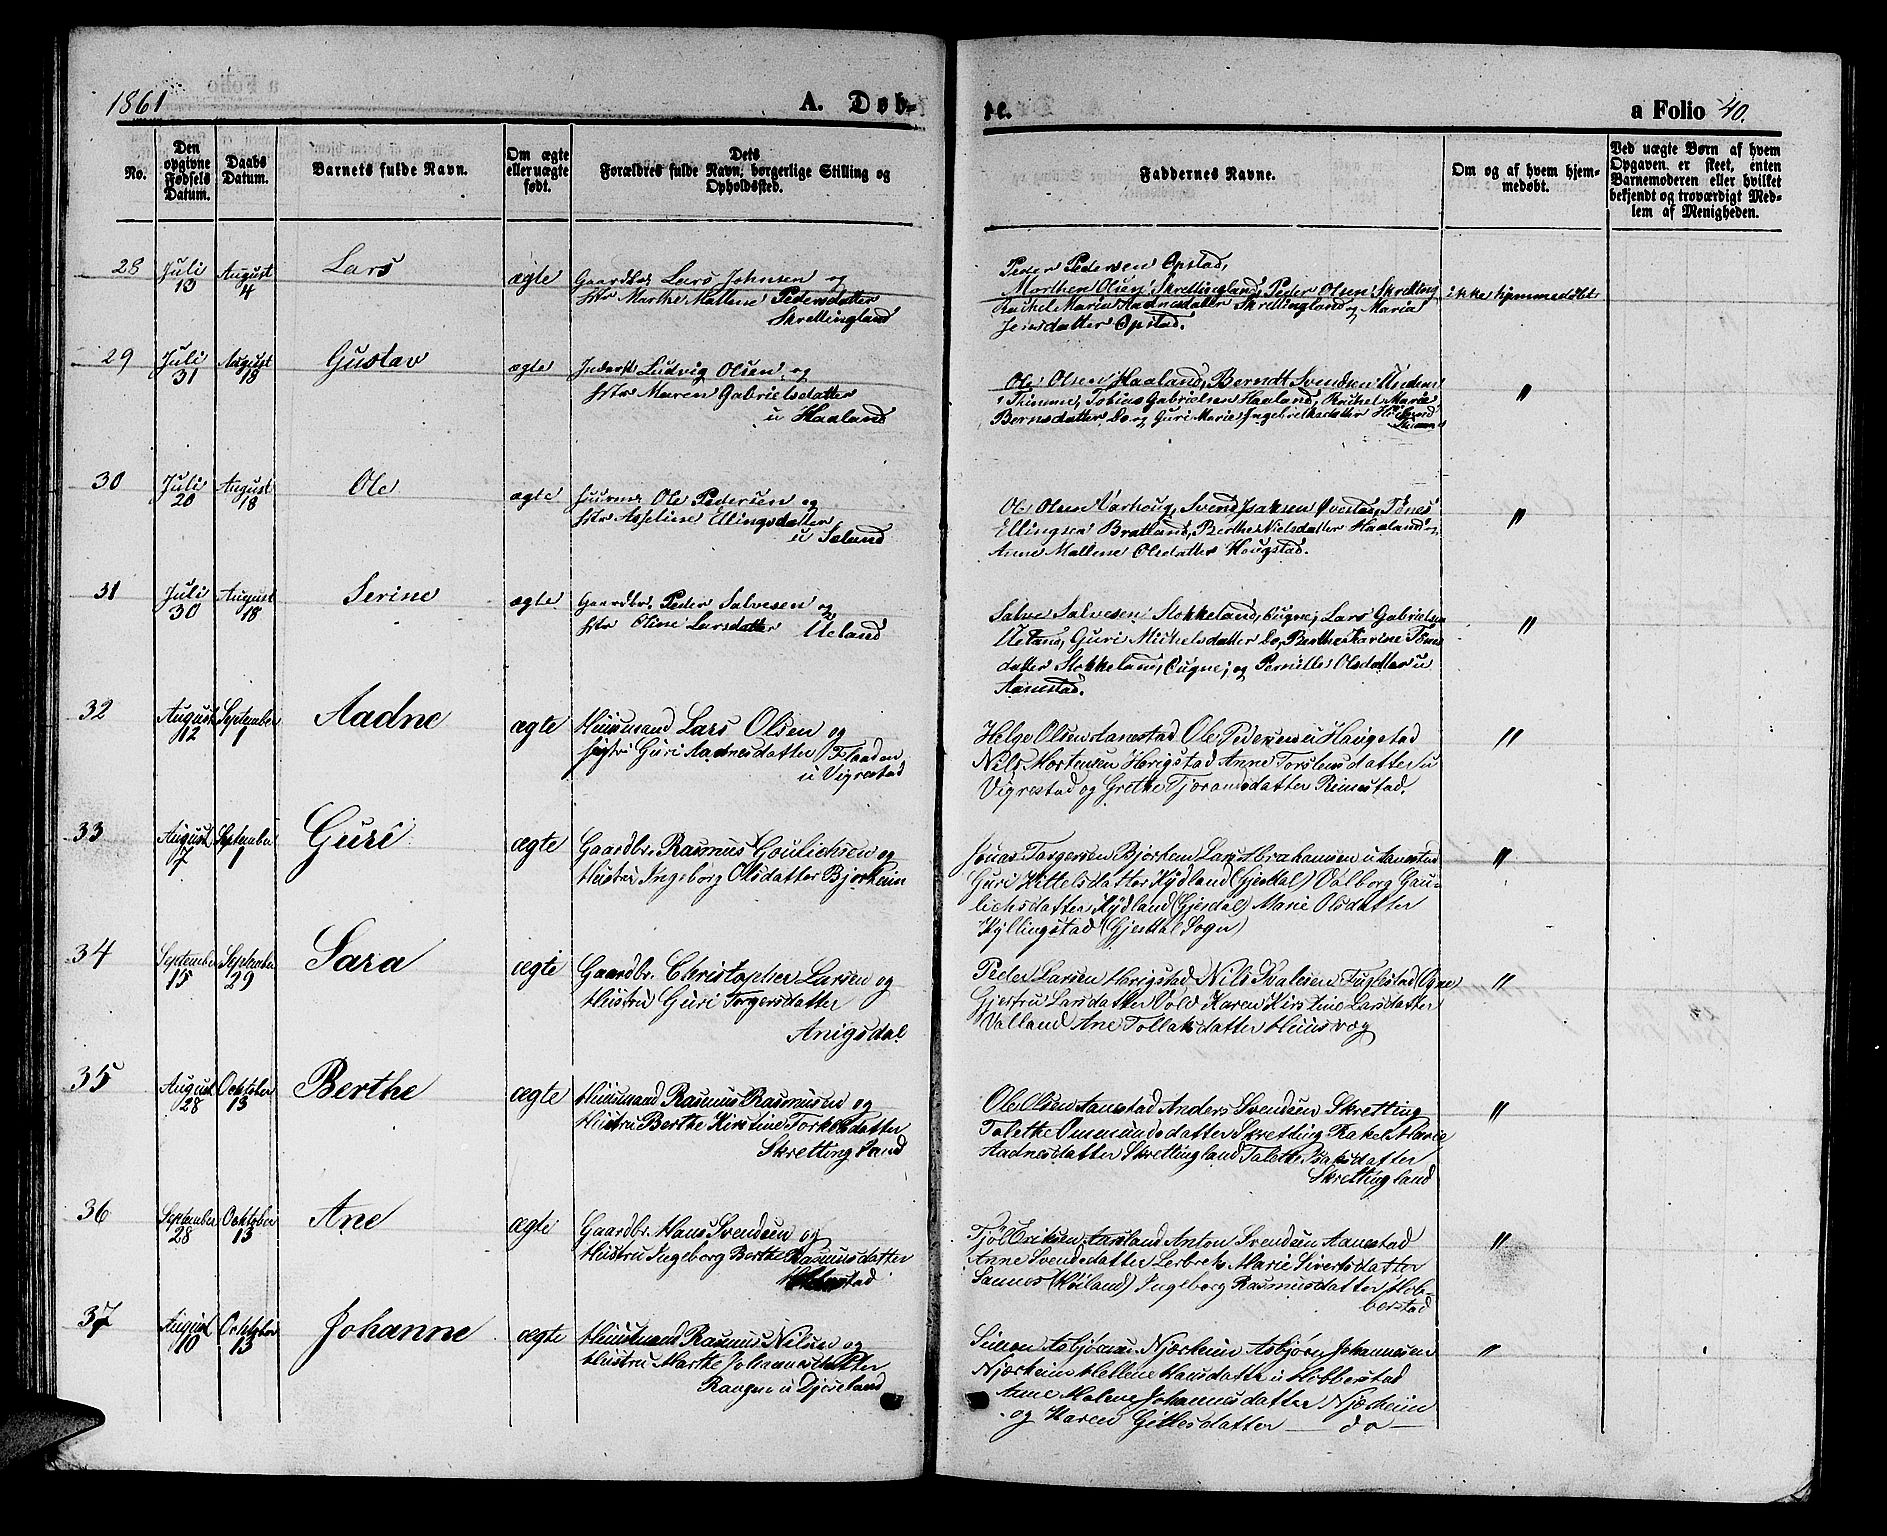 1861
A. Døb-
te.
a Folio 40.
No.
Den opgivne Fødsels Datum.
Daabs Datum.
Barnets fulde Navn.
Om ægte eller uægte født.
Dets Forældres fulde Navn, borgerlige Stilling og Opholdssted.
Faddernes Navne.
Om og af hvem hjemmedøbt.
Ved uægte Børn af hvem Opgaven er skeet, enten Barnemoderen eller hvilket bekjendt og troværdigt Medlem af Menigheden.
28 Juli 13 August 4 Lars ægte Gaardbr. Lars Johnsen og
Hstr Marthe Mallene Pedersdatter
Skrettingland
Peder Pedersen Opstad,
Morthen Olsen Skrettingland, Peder Olsen Skretting
Rachel Maria Aadnesdatter Skrettingland og Maria
Jensdatter Opstad.
ikke hjemmedøbt
29 Juli 31 August 18 Gustav ægte Inderst Ludvig Olsen og
Hstr Maren Gabrielsdatter
u Haaland
Ole Olsen Haaland, Berndt Svendsen
Thimme, Tobias Gabrielsen Haaland, Rachel Marie
Bernsdatter Do og Guri Marie Ingebretsdatter
"
30 Juli 20 August 18 Ole ægte Huusm. Ole Pedersen og
Hstr Asseline Ellingsdatter
u Søland
Ole Olsen Aarhoug, Svend Isaksen Øvestad, Tönes
Ellingsen Bratland, Berthe Nielsdatter Haaland og
Anne Mallene Olsdatter Hougstad.
"
31 Juli 30 August 18 Serine ægte Gaardbr. Peder Salvesen og
Hstr Oline Larsdatter Ueland
Salve Salvesen Stokkeland, Ougne, Lars Gabrielsen
Ueland, Guri Michelsdatter Do, Berthe Karine Tönes
datter Stokkeland, Ougne; og Pernille Olsdatter u
Aanestad.
"
32 August 12 September 1 Aadne ægte Huusmand Lars Olsen og
Hustru Guri Aadnesdatter Flaaden
u Vigrestad
Helge Olsen Aanestad Ole Pedersen u Haugstad
Nils Mortensen Horigstad Anne Torstensdatter u
Vigrestad og Grethe Tjoransdatter Rimestad.
"
33 August 7 September 1 Guri ægte Gaardbr. Rasmus Goulichsen og
Hustru Ingeborg Olsdatter Bjorheim
Jonas Torgersen Bjorhem Lars Abrahamsen u Aanestad
Guri Kittelsdatter Kydland (Gjesdal) Valborg Gau-
lichsdatter Kydland (Gjesdal) Marie Olsdatter
Kyllingstad (Gjesdal Sogn)
"
34 September 15 September 29 Sara ægte Gaardbr. Christopher Larsen og
Hustru Guri Torgersdatter
Anigsdal
Peder Larsen Horigstad, Nils Kvalesen Fuglestad (Ogne
Gjertru Larsdatter Vold Karen Kirstine Larsdatter
Valland Ane Tollaksdatter Huusvæg
"
35 August 28 October 13 Berthe ægte Huusmand Rasmus Rasmusen og
Hustru Berthe Kirstine Torkelsdatter
Skrettingland
Ole Olsen Aanestad Anders Svendsen Skretting
Talethe Ommundsdatter Skretting Rakel Marie
Aadnesdatter Skrettingland Talethe Isaksdatter
Skrettingland
"
36 September 28 October 13 Ane ægte Gaardbr. Hans Svendsen og
Hustru Ingeborg Berthe Rasmusdatter
Eriksen Aarsland Anton Svendsen Aanestad
Anne Svendsdatter Lerbrek Marie Sivertsdatter
Sannes (Høiland) Ingeborg Rasmusdatter Hob-
berstad
"
37 August 10 October 13 Johanne ægte Huusmand Rasmus Nilsen og
Hustru Marthe Johannesdatter
Raugen u Djøseland
Simon Asbjørnsen Njærheim Asbjørn Johannesen
Njærheim Hellene Hansdatter u Hobberstad
Anne Malene Johannesdatter Njærheim
og Karen Gitlesdatter — do —
"